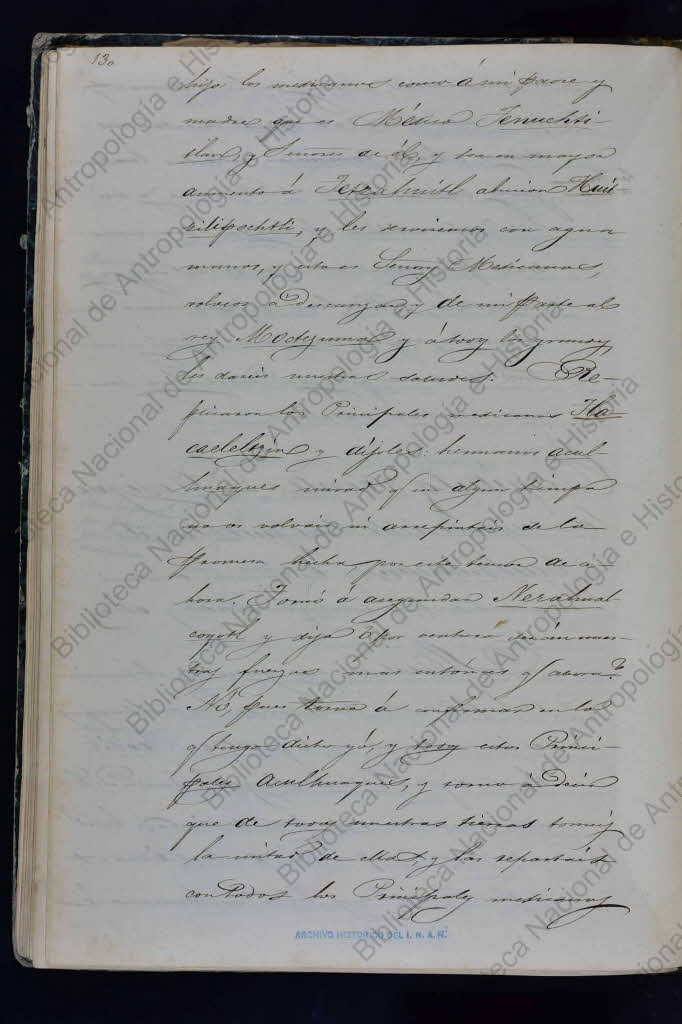 130
hijo los mexicanos como á mi padre y
madre que es México Tenuchti-
tlan, y Señores de él, y sea en mayor
aumento á Tetzahuitl abucion Huit-
zilipochtli, y les serviremos con agua
manos, y esto es Señory Mexicanos,
volveos á descanzar y de mi parte al
rey Moctezuma y á tody los grandy,
les dareis nuestras saludes. Re-
plicaron los Principales mexicanos Tla-
caeleltzin y díjoles: hermanos acul-
huaques mirad q/ en algun tiempo
no os volvais ni arrepintais de la
promesa hecha por este temor de a-
hora. Tornó á asegundar Nezahual-
coyotl y dijo ¿por ventura serán nues-
tras fuerzas mas entónces q/ ahora?
Nó, pues torno á confirmar en lo
q/ tengo dicho yó, y tody estos Princi-
pales aculhuaques, y torno á decir
que de todas nuestras tierras tomeis
la mitad de ellas, y las repartais
con todos los Principaly mexicanos
ARCHIVO HISTORICO DEL I. N. A. H.
Biblioteca Nacional de Antropología e Historia